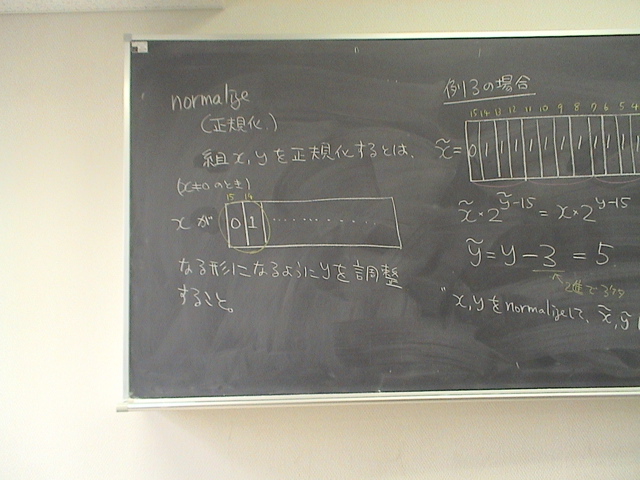 normalize
(正規化)
組x,yを正規化するとは、
(x≠0のとき)
15 14
xが 0 1 ..........
なる形になるようにyを調整
すること。
例13の場合
15 14 13 12 11 10 9 8 7 6 5 4
x̃= 0 1 1 1 1 1 1 1 1 1 1 1
x̃×2^ỹ-15 = x×2^y-15
ỹ=y-3=5
2進で3ケタ
"x,yをnormalizeして、x̃,ỹ